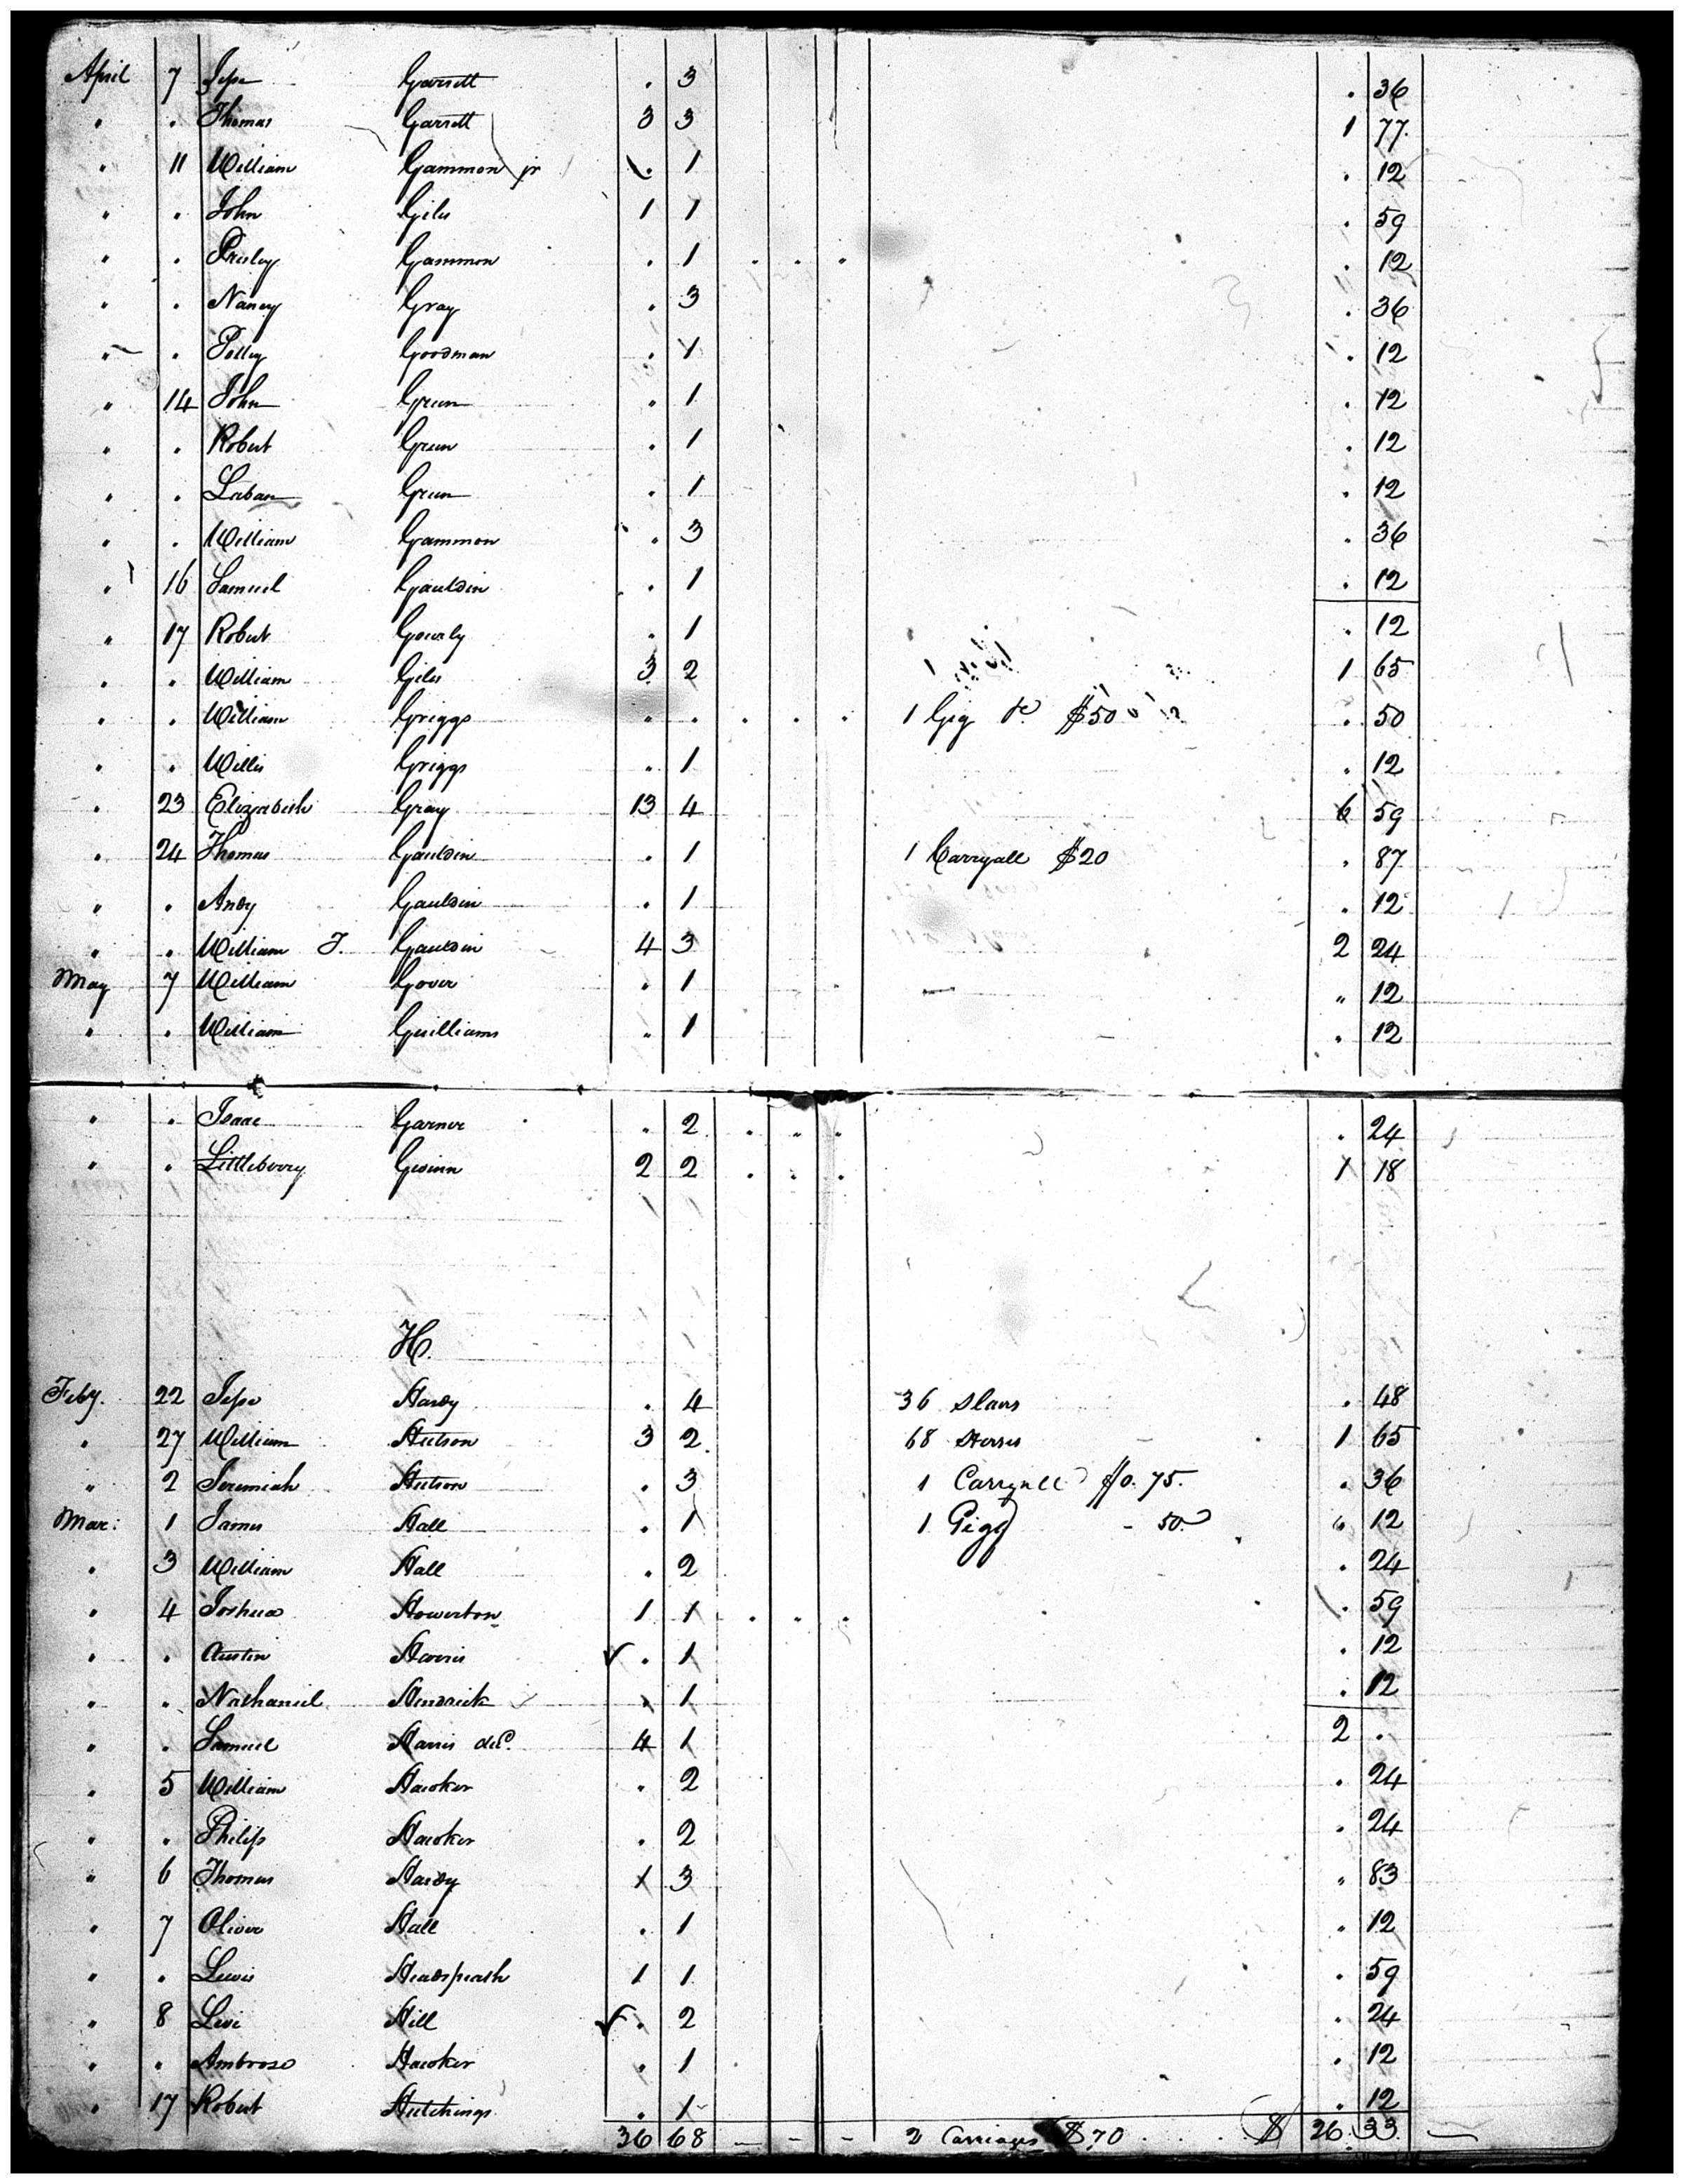 April 7 Jesse Garrett . 3 . 36
" . Thomas Garrett 3 3 1 77.
" 11 William Gammon jr . 1 . 12
" . John Giles 1 1 . 59
" . Presley Gammon . 1 . . . . 12
" . Nancy Gray . 3 . 36
" . Polley Goodman . 1 . 12
" 14 John Green . 1 . 12
" . Robert Green . 1 . 12
" . Laban Green . 1 . 12
" . William Gammon . 3 . 36
" 16 Samuel Gauldin . 1 . 12
" 17 Robert Gourly . 1 . 12
" . William Giles 3 2 1 65
" . William Griggs . . . . . 1 Gig $50 . 50
" . Willis Griggs . 1 . 12
" 23 Elizabeth Gray 13 4 6 59
" 24 Thomas Gauldin . 1 1 Carryall $20 . 87
" . Andy Gauldin . 1 . 12
" . William T. Gauldin 4 3 2 24
May 7 William Gover . 1 " 12
" . William Guilliams . 1 . 12
" . Isaac Garner . 2 . . . . 24
" . Littleberry Gwinn 2 2 . . . 1 18
H.
Feby. 22 Jesse Hardy . 4 36 Slaves . 48
" 27 William Hutson 3 2 68 Horses 1 65
" 2 Jeremiah Hutson . 3 1 Carryall $0.75. . 36
Mar: 1 James Hall . 1 1 Gigg - 50 " 12
" 3 William Hall . 2 . 24
" 4 Joshua Howerton 1 1 . . . . 59
" . Austin Harris ✓ . 1 . 12
" . Nathaniel Hendrick . 1 . 12
" . Samuel Harris decd. 4 1 2 .
" 5 William Hawker . 2 . 24
" . Philip Hawker . 2 . 24
" 6 Thomas Hardy 1 3 " 83
" 7 Oliver Hall . 1 " 12
" . Lewis Hedspeath 1 1 . 59
" 8 Levi Hill ✓ . 2 . 24
" . Ambrose Hawker . 1 . 12
" 17 Robert Hutchings . 1 . 12
36 68 - - - 2 Carriages $70 . . . $ 26 33